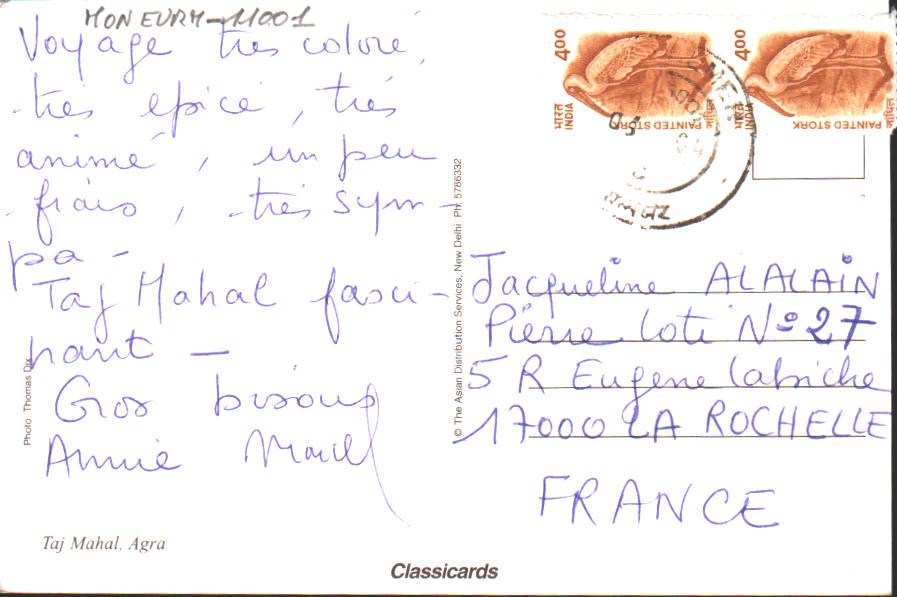 MONEURM-11001
Voyage très coloré,
très épicé, très
animé, un peu
frais, très sym-
pa -
Taj Mahal fasci-
nant -
Gros bisous
Annie
Photo: Thomas Dix
Taj Mahal, Agra
© The Asian Distribution Services, New Delhi Ph: 5786332
Classicards
4.00
भारत
INDIA
PAINTED STORK
4.00
भारत
INDIA
PAINTED STORK
Jacqueline ALALAIN
Pierre Loti N° 27
5 R Eugene Labiche
17000 LA ROCHELLE
FRANCE